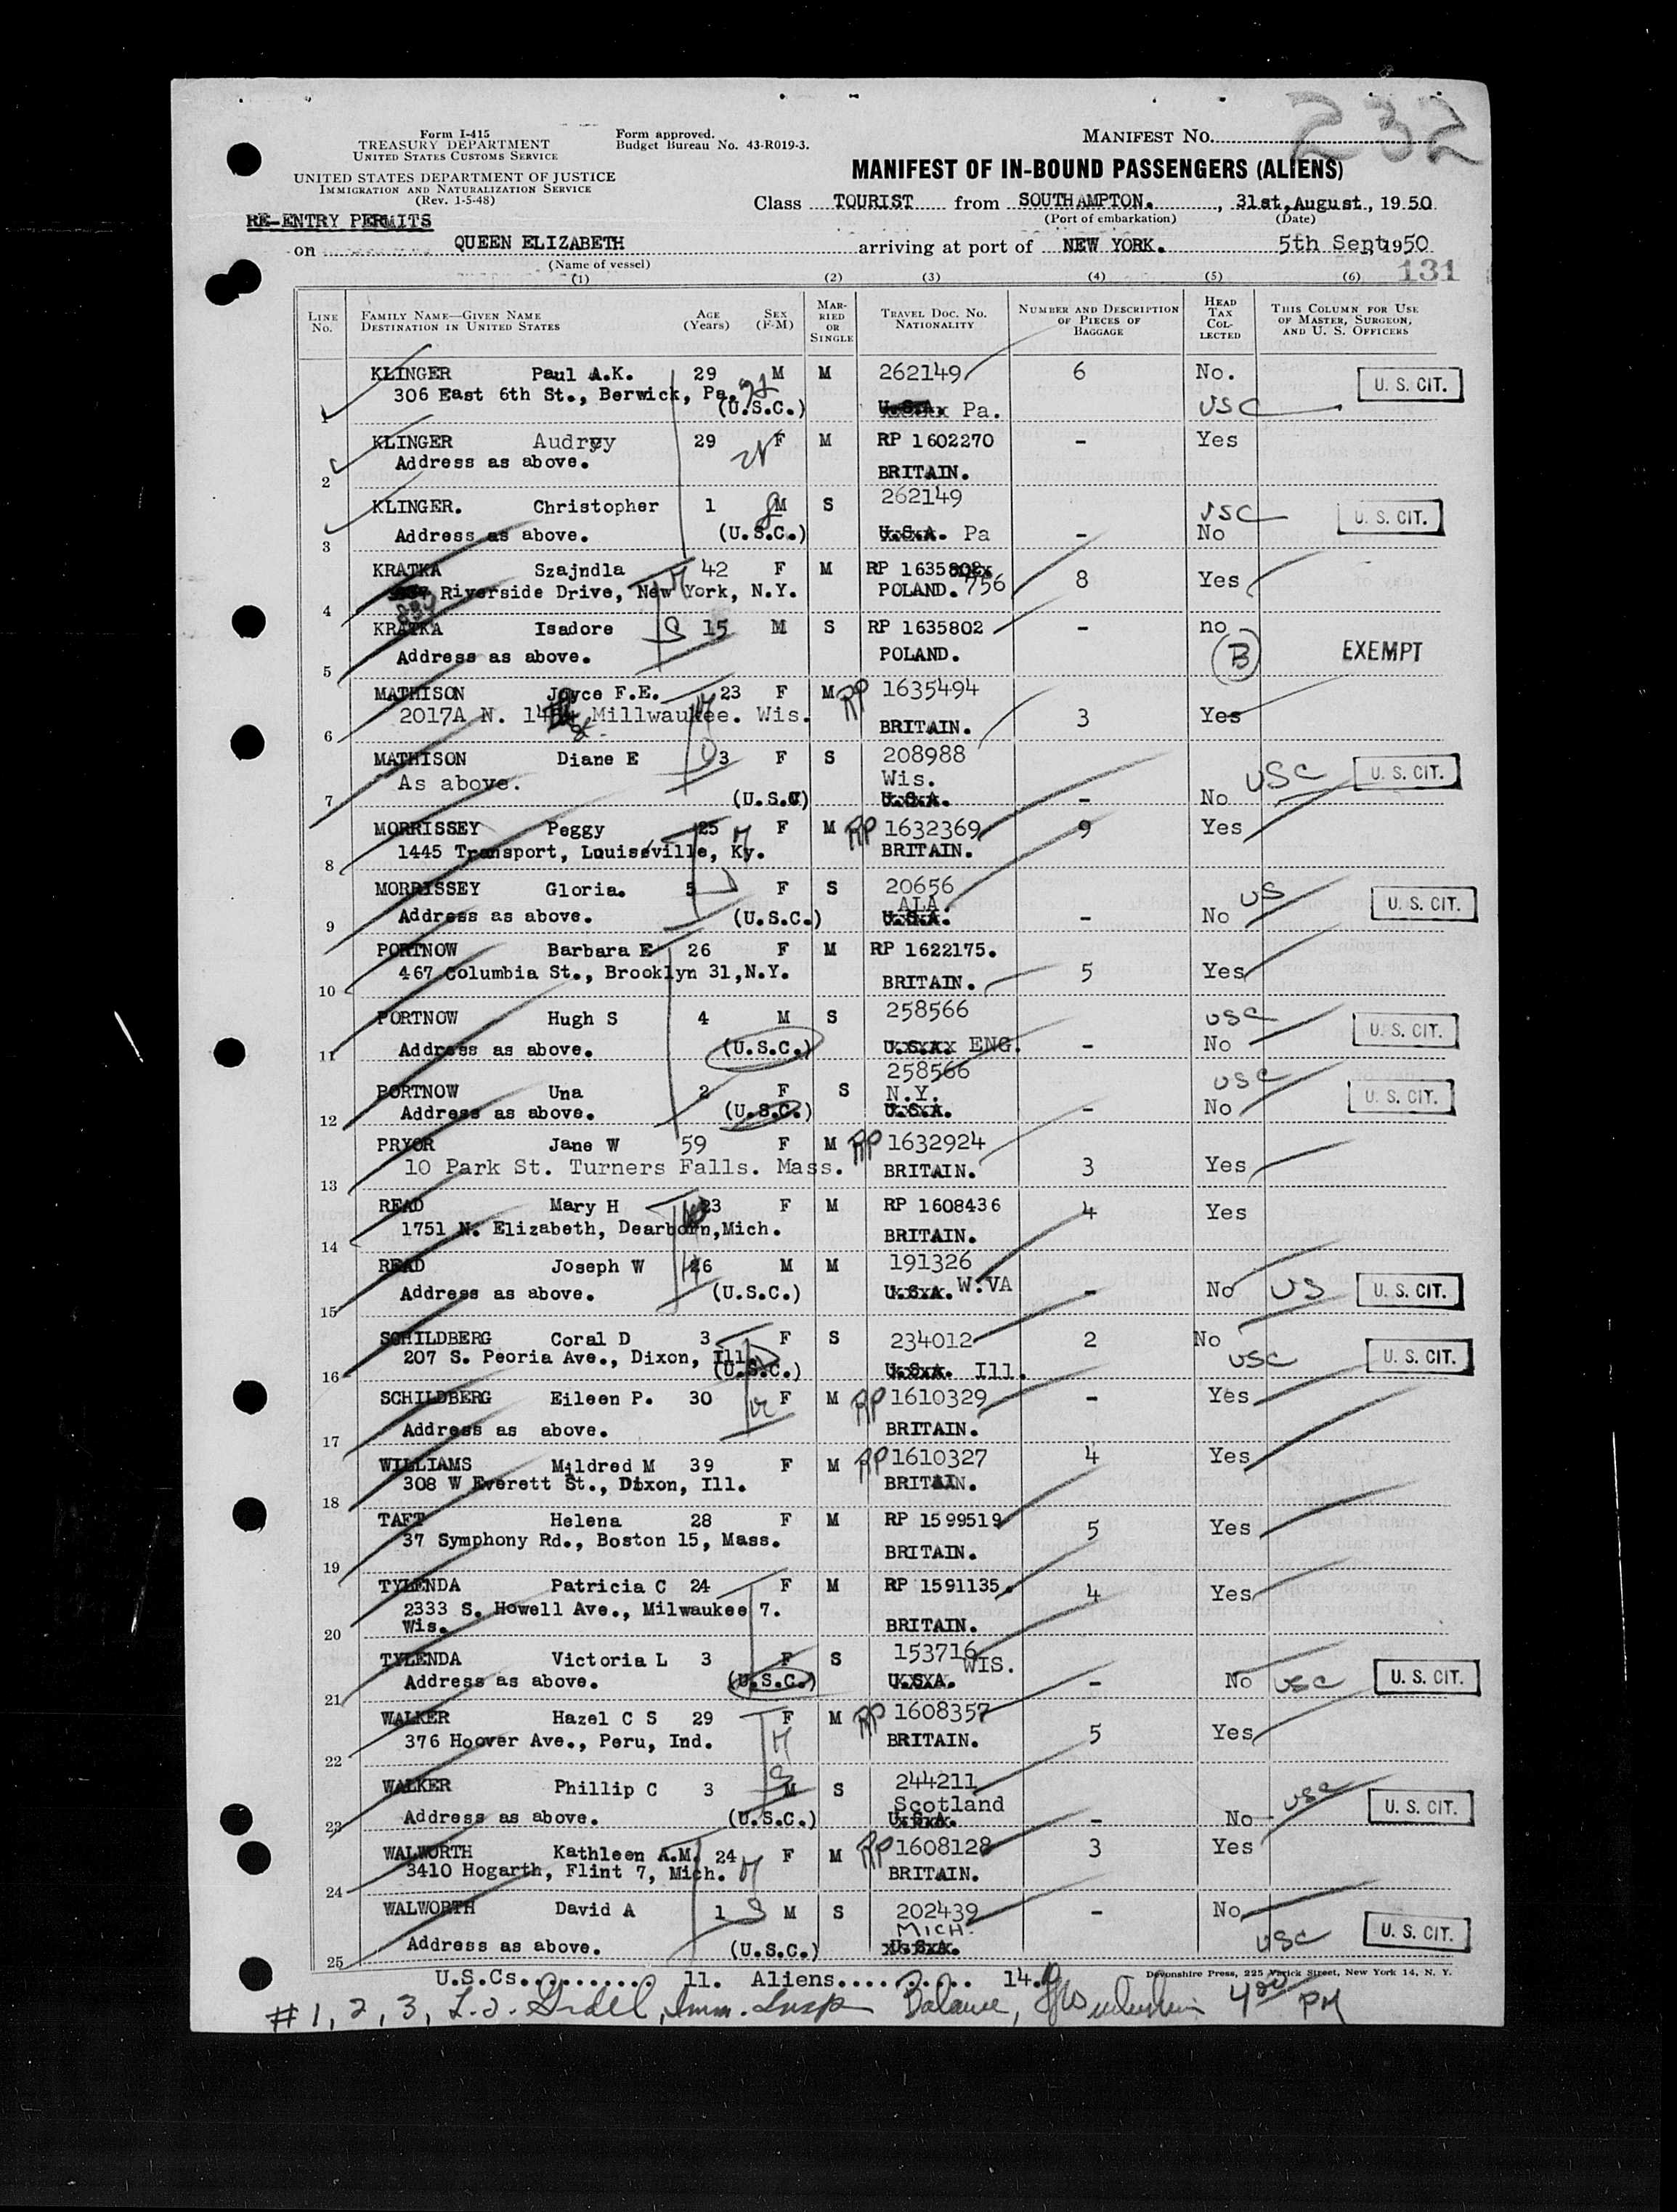 232
Form I-415
TREASURY DEPARTMENT
UNITED STATES CUSTOMS SERVICE
UNITED STATES DEPARTMENT OF JUSTICE
IMMIGRATION AND NATURALIZATION SERVICE
(Rev. 1-5-48)
Form approved.
Budget Bureau No. 43-R019-3.
MANIFEST NO.
MANIFEST OF IN-BOUND PASSENGERS (ALIENS)
Class TOURIST from SOUTHAMPTON. , 31st, August, 1950
(Port of embarkation) (Date)
RE-ENTRY PERMITS
on QUEEN ELIZABETH arriving at port of NEW YORK. 5th Sept, 1950
(Name of vessel)
131
(1) (2) (3) (4) (5) (6)
LINE No. FAMILY NAME—GIVEN NAME DESTINATION IN UNITED STATES AGE (Years) SEX (F-M) MARRIED OR SINGLE TRAVEL DOC. NO. NATIONALITY NUMBER AND DESCRIPTION OF PIECES OF BAGGAGE HEAD TAX COLLECTED THIS COLUMN FOR USE OF MASTER, SURGEON, AND U. S. OFFICERS
KLINGER Paul A.K. 29 M M 262149 6 No. U. S. CIT.
306 East 6th St., Berwick, Pa.
1 (U.S.C.) U.S.A. Pa. USC
KLINGER Audrey 29 F M RP 1602270 - Yes
Address as above.
2 BRITAIN.
KLINGER. Christopher 1 M S 262149 USC U. S. CIT.
3 Address as above. (U.S.C.) U.S.A. Pa - No
KRATKA Szajndla 42 F M RP 1635802 756 8 Yes
4 Riverside Drive, New York, N.Y. POLAND.
KRATKA Isadore 15 M S RP 1635802 - no
5 Address as above. POLAND. B EXEMPT
MATHISON Joyce F.E. 23 F M RP 1635494
6 2017A N. Millwaukee. Wis. BRITAIN. 3 Yes
MATHISON Diane E 3 F S 208988 USC U. S. CIT.
As above. Wis.
7 (U.S.C) U.S.A. - No
MORRISSEY Peggy 25 F M RP 1632369 9 Yes
8 1445 Transport, Louiseville, Ky. BRITAIN.
MORRISSEY Gloria. 5 F S 20656 US U. S. CIT.
ALA.
9 Address as above. (U.S.C.) U.S.A. - No
PORTNOW Barbara E 26 F M RP 1622175.
10 467 Columbia St., Brooklyn 31, N.Y. BRITAIN. 5 Yes
PORTNOW Hugh S 4 M S 258566 USC U. S. CIT.
11 Address as above. (U.S.C.) U.S.A. ENG. - No
258566
PORTNOW Una 2 F S N.Y. USC U. S. CIT.
12 Address as above. (U.S.C.) U.S.A. - No
PRYOR Jane W 59 F M RP 1632924
13 10 Park St. Turners Falls. Mass. BRITAIN. 3 Yes
READ Mary H 23 F M RP 1608436 4 Yes
14 1751 N. Elizabeth, Dearborn, Mich. BRITAIN.
READ Joseph W 26 M M 191326
15 Address as above. (U.S.C.) U.S.A. W.VA - No US U. S. CIT.
SCHILDBERG Coral D 3 F S 234012 2 No
207 S. Peoria Ave., Dixon, Ill.
16 (U.S.C.) U.S.A. Ill. USC U. S. CIT.
SCHILDBERG Eileen P. 30 F M RP 1610329 - Yes
17 Address as above. BRITAIN.
WILLIAMS Mildred M 39 F M RP 1610327 4 Yes
18 308 W Everett St., Dixon, Ill. BRITAIN.
TAFT Helena 28 F M RP 1599519 5 Yes
19 37 Symphony Rd., Boston 15, Mass. BRITAIN.
TYLENDA Patricia C 24 F M RP 1591135. 4 Yes
2333 S. Howell Ave., Milwaukee 7.
20 Wis. BRITAIN.
TYLENDA Victoria L 3 F S 153716 WIS.
21 Address as above. (U.S.C.) U.S.A. - No USC U. S. CIT.
WALKER Hazel C S 29 F M RP 1608357
22 376 Hoover Ave., Peru, Ind. BRITAIN. 5 Yes
WALKER Phillip C 3 M S 244211 USC U. S. CIT.
Scotland
23 Address as above. (U.S.C.) U.S.A. - No
WALWORTH Kathleen A.M. 24 F M RP 1608128 3 Yes
24 3410 Hogarth, Flint 7, Mich. BRITAIN.
WALWORTH David A 1 M S 202439 - No
MICH.
25 Address as above. (U.S.C.) U.S.A. USC U. S. CIT.
U.S.Cs.......... 11. Aliens.......... 14.
Devonshire Press, 225 Varick Street, New York 14, N. Y.
#1, 2, 3, Imm. Insp Balance, 4 20 PM